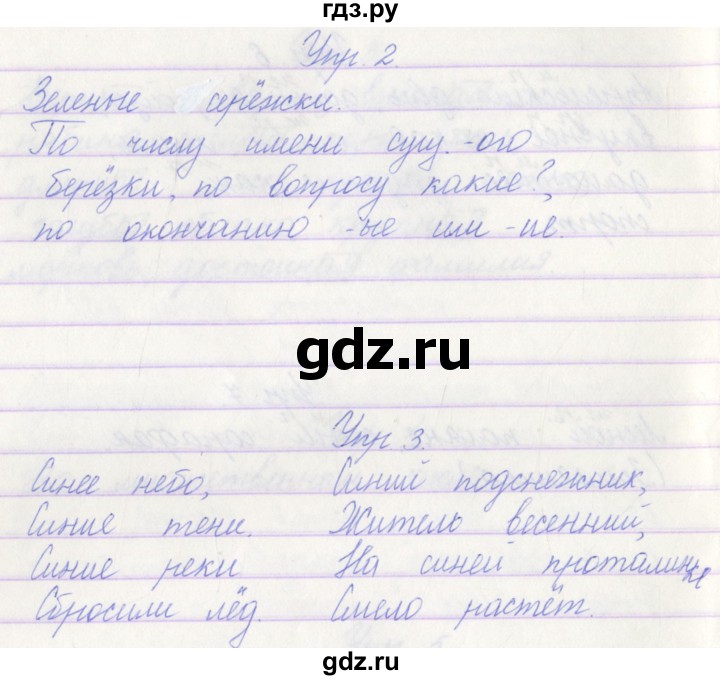 гдз.ру
Упр. 2.
Зеленые серёжки.
По числу имени сущ.-ого
берёзки, по вопросу какие?,
по окончанию -ые или -ие.
gdz.ru
Упр. 3.
Синее небо, Синий подснежник,
Синие тени. Житель весенний,
Синие реки На синей проталинке
Сбросили лёд. Смело растёт.
gdz.ru